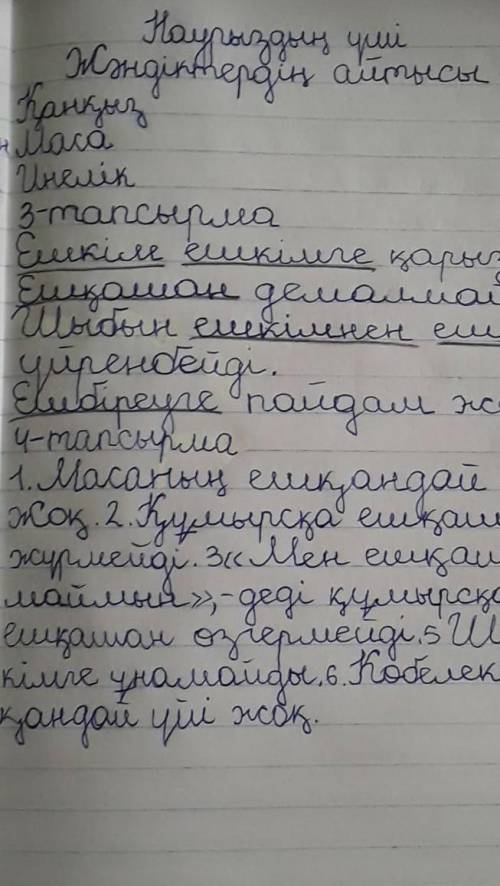 Наурыздың үші
Жәндіктердің айтысы
Қанқыз
Маса
Инелік
3-тапсырма
Ешкім ешкімге қарыз
Ешқашан демалмай
Шыбын ешкімнен еш
үйренбейді.
Ешбіреуге пайдам ж
4-тапсырма
1. Масаның ешқандай
жоқ. 2. Құмырсқа ешқаш
жүрмейді. 3 «Мен ешқаш
маймын», - деді құмырсқа
ешқашан өзгермейді. 5 Ш
кімге ұнамайды. 6. Көбелек
қандай үйі жоқ.